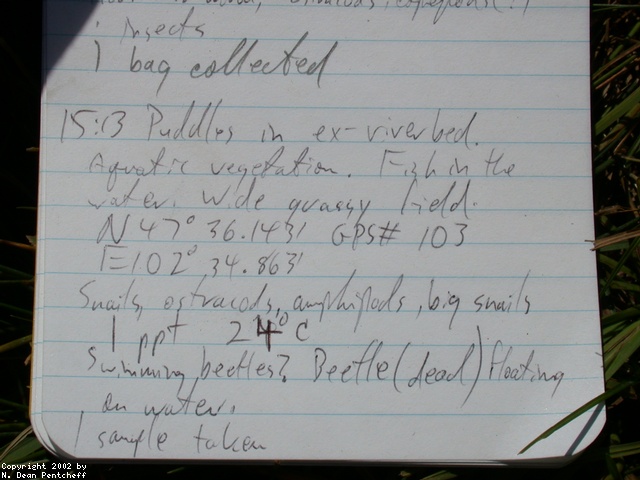 insects
1 bag collected
15:13 Puddles in ex-river bed.
Aquatic vegetation. Fish in the
water. Wide grassy field.
N 47° 36.143' GPS# 103
E 102° 34.863'
Snails, ostracods, amphipods, big snails
1 ppt 24° C
Swimming beetles? Beetle (dead) floating
on water.
1 sample taken
Copyright 2002 by
N. Dean Pentcheff